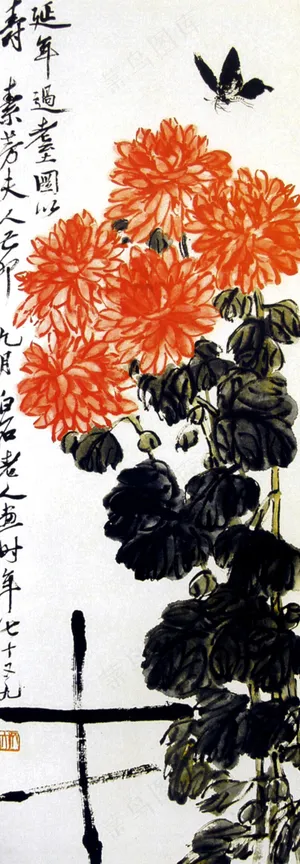 延年過耄圖以
壽 素芳夫人己卯 九月 白石老人画时年七十又九